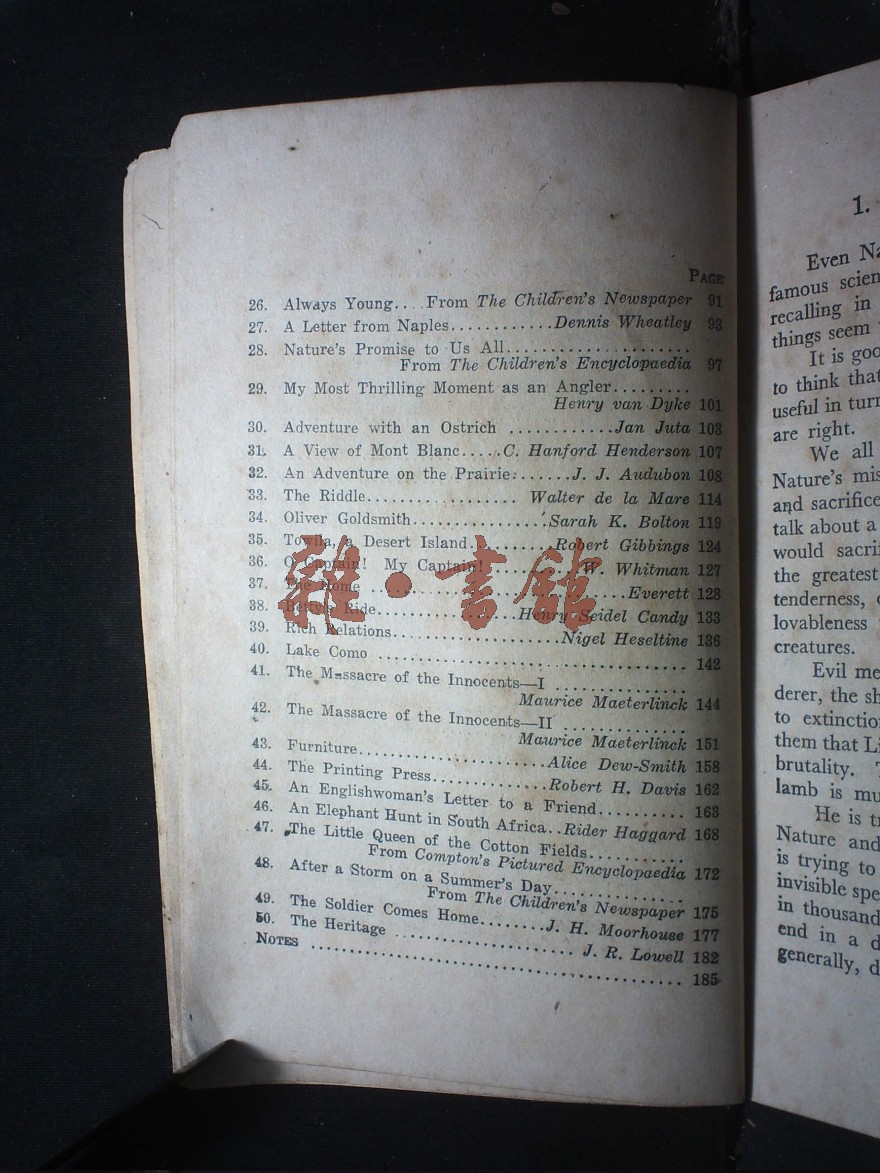 PAGE
26. Always Young.... From The Children's Newspaper 91
27. A Letter from Naples............Dennis Wheatley 93
28. Nature's Promise to Us All.....................
From The Children's Encyclopaedia 97
29. My Most Thrilling Moment as an Angler.........
Henry van Dyke 101
30. Adventure with an Ostrich ............Jan Juta 103
31. A View of Mont Blanc.....C. Hanford Henderson 107
32. An Adventure on the Prairie.......J. J. Audubon 108
33. The Riddle.................. Walter de la Mare 114
34. Oliver Goldsmith................Sarah K. Bolton 119
35. a Desert Island..........Robert Gibbings 124
36. O Captain! My Captain! ..........W. Whitman 127
37. The Home ..........................Everett 128
38. Betty's Ride................Henry Seidel Candy 133
39. Rich Relations...................Nigel Heseltine 136
40. Lake Como .................................. 142
41. The Massacre of the Innocents—I ..............
Maurice Maeterlinck 144
42. The Massacre of the Innocents—II ..............
Maurice Maeterlinck 151
43. Furniture.....................Alice Dew-Smith 158
44. The Printing Press.............Robert H. Davis 162
45. An Englishwoman's Letter to a Friend.......... 163
46. An Elephant Hunt in South Africa..Rider Haggard 168
47. The Little Queen of the Cotton Fields...........
From Compton's Pictured Encyclopaedia 172
48. After a Storm on a Summer's Day...............
From The Children's Newspaper 175
49. The Soldier Comes Home........J. H. Moorhouse 177
50. The Heritage ..................... J. R. Lowell 182
NOTES .......................................... 185
雜·書館
1.
Even
famous
recalling in
things seem
It is
to think
useful in
are right.
We all
Nature's
and
talk about a
would
the greatest
tenderness,
lovableness
creatures.
Evil
derer, the
to
them that
brutality.
lamb is
He is
Nature and
is trying to
invisible
in
end in a
generally,